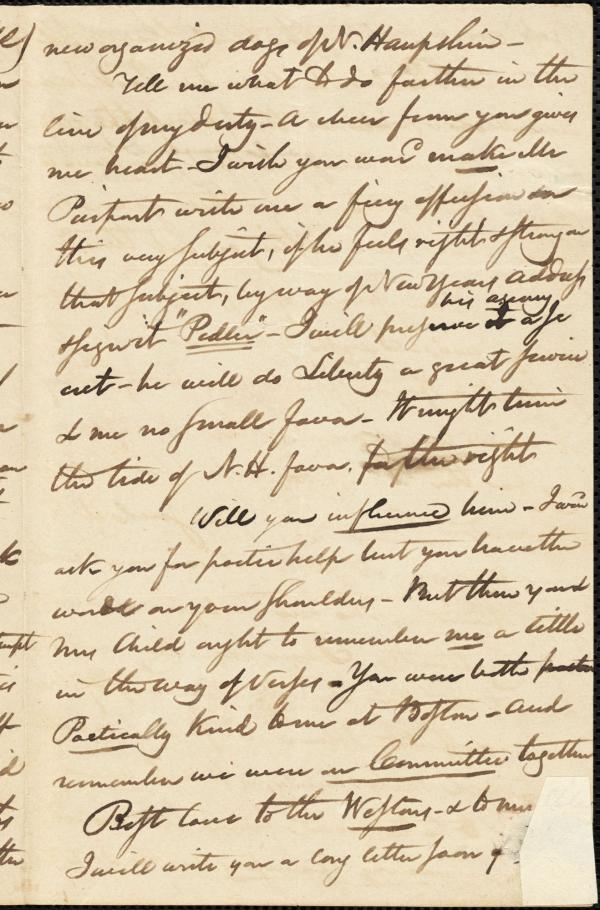 new organized dogs of N. Hampshire -
Tell me what to do farther in the
line of my duty - A cheer from you gives
me heart - I wish you wod make Mr
Pierpont write me a fiery effusion on
this very subject, if he feels right & strong on
that subject, by way of New Years address
& sign it "Pedler" - I will preserve his agency a se
cret - he will do Liberty a great service
& me no small favor - It might turn
the tide of N.H. favor, for the right
Will you influence him - I wod
ask you for poetic help but you have the
world on your shoulders - But then you &
Mrs Child ought to remember me a little
in the way of verses - You were both
Poetically kind to me at Boston - and
remember we were on Committee together
Best love to the Westons - & to
I will write you a long letter soon